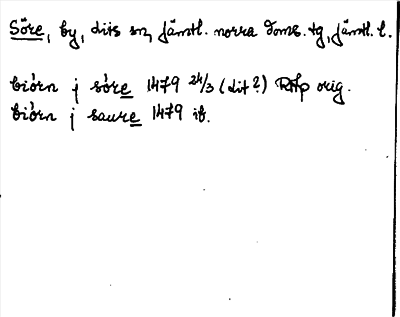 Söre, by, Lits sn, Jämtl. norra doms. tg, Jämtl. l.
biörn j söre 1479 24/3 (Lit?) RAp orig.
biörn j saure 1479 ib.